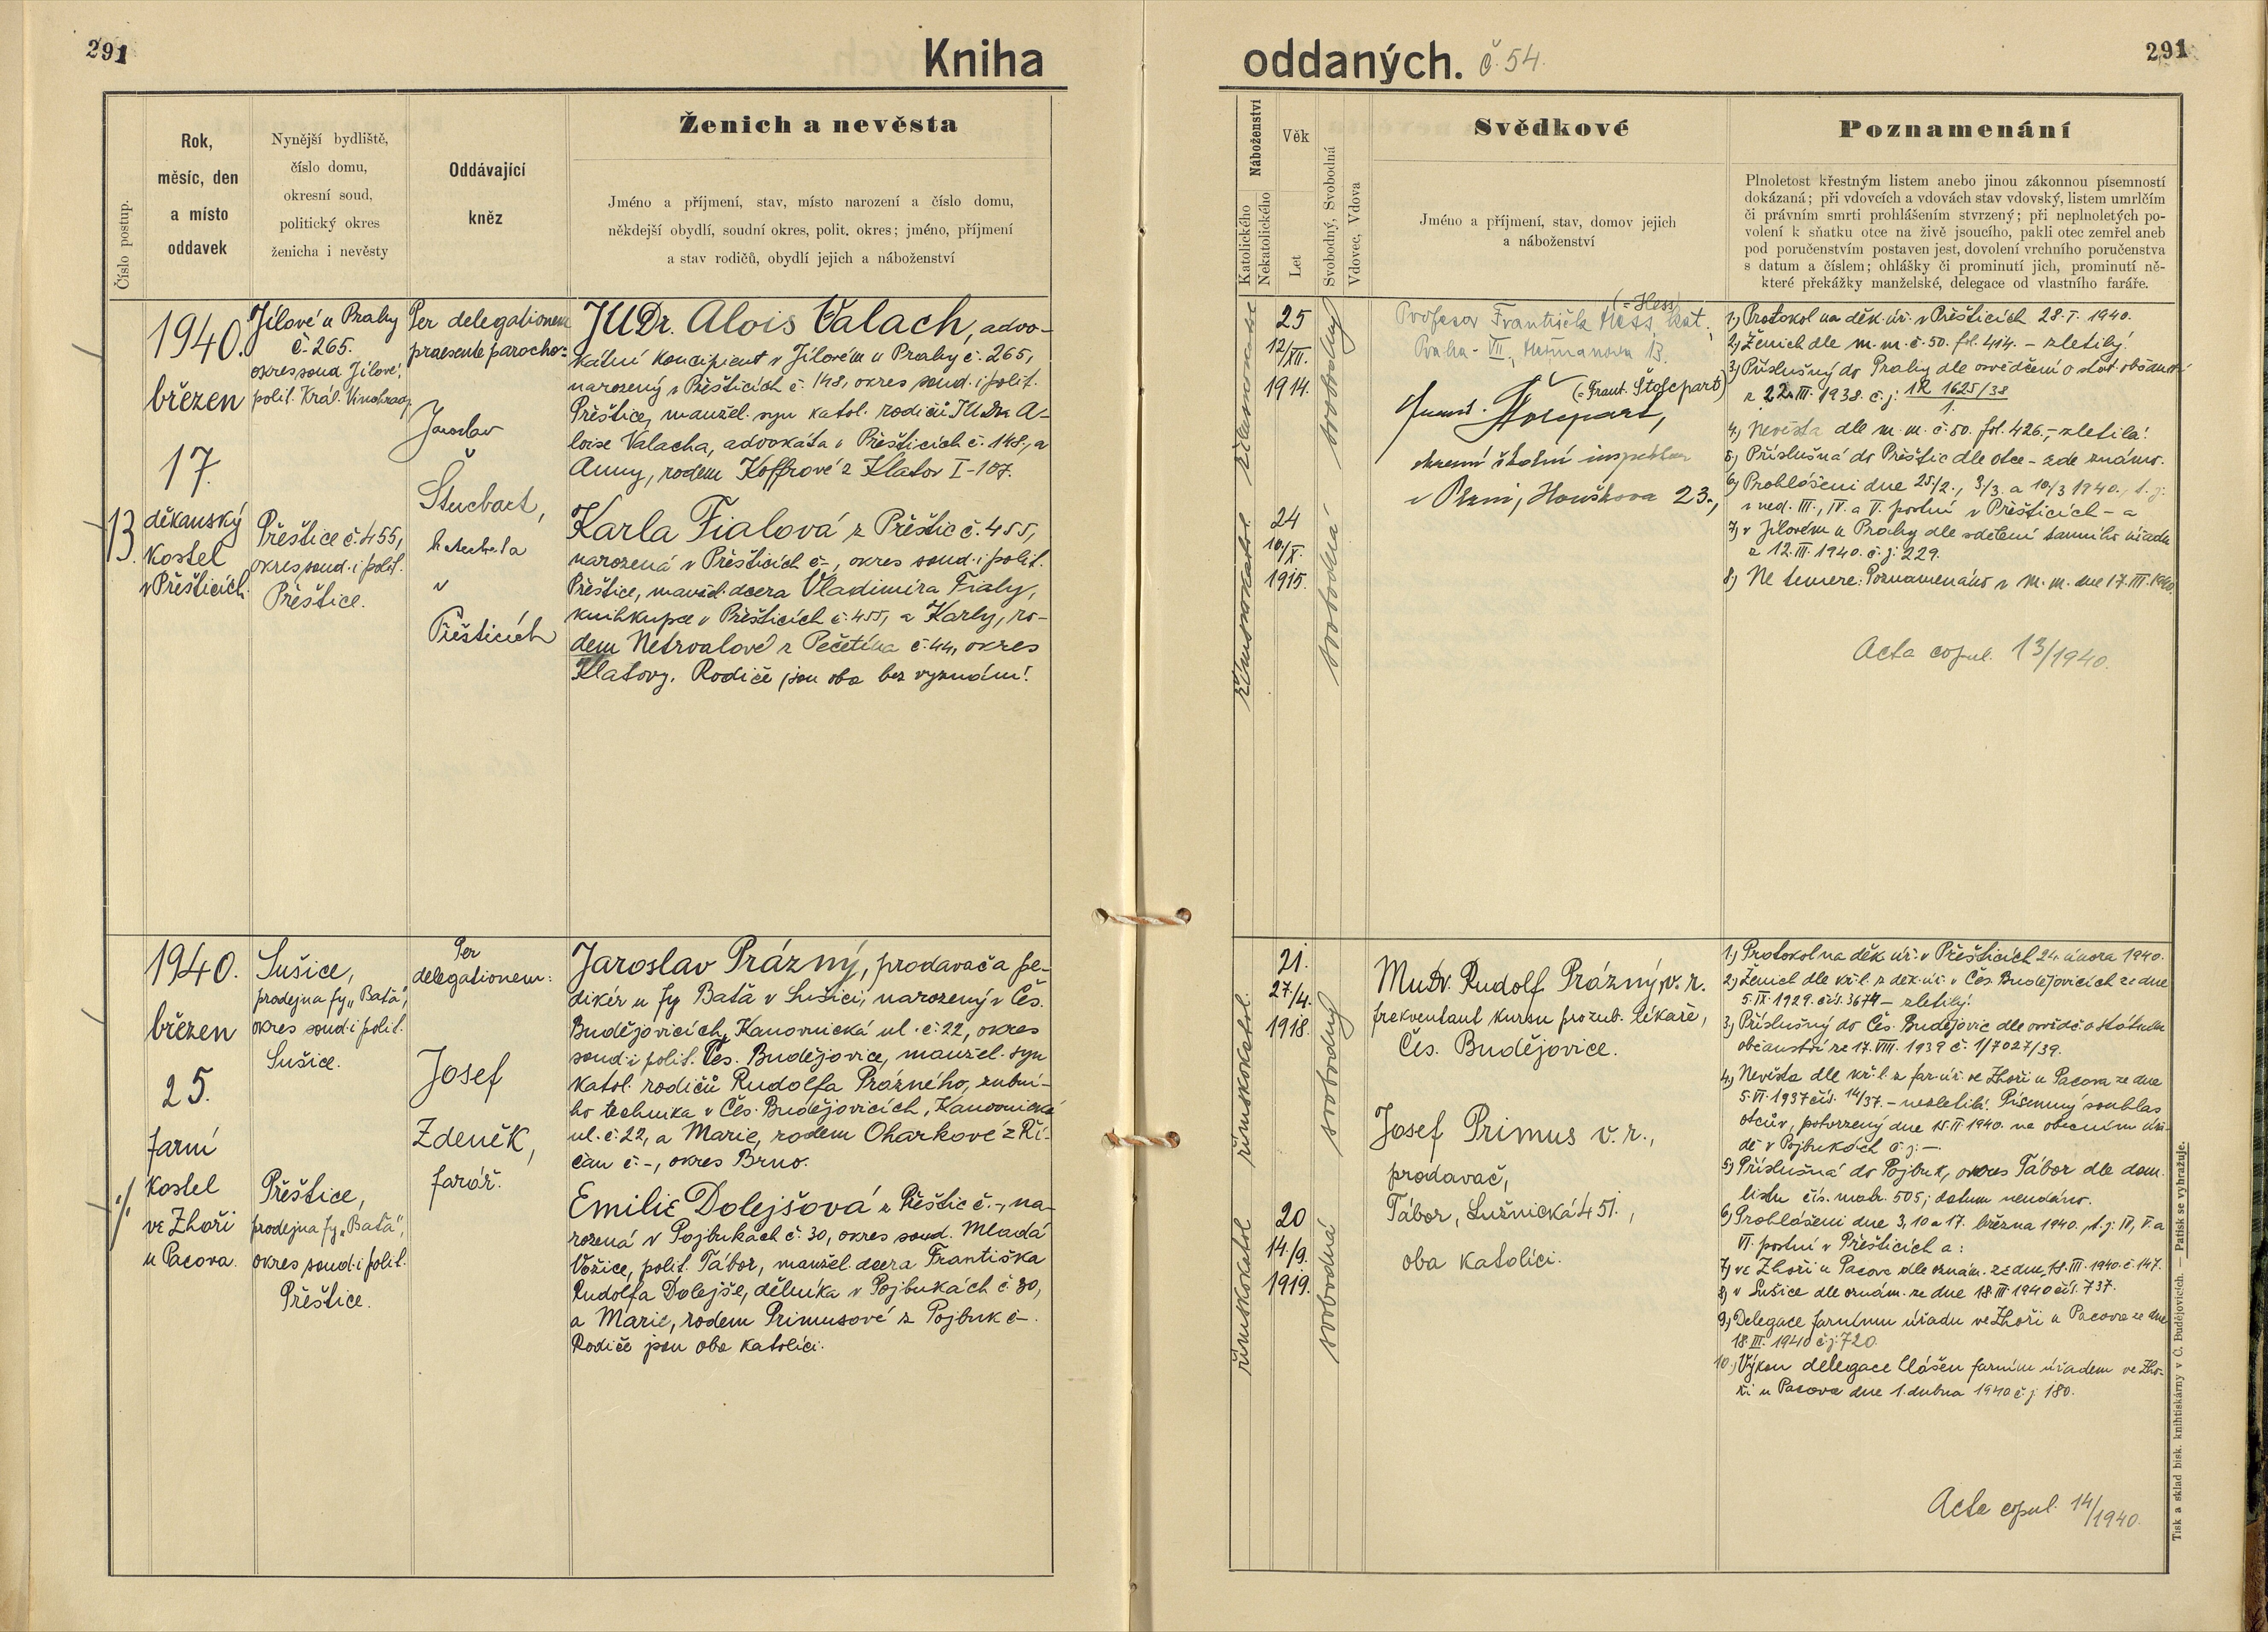 291
Kniha
oddaných. č. 54.
291
Číslo postup.
Rok,
měsíc, den
a místo
oddavek
Nynější bydliště,
číslo domu,
okresní soud,
politický okres
ženicha i nevěsty
Oddávající
kněz
Ženich a nevěsta
Jméno a příjmení, stav, místo narození a číslo domu,
někdejší obydlí, soudní okres, polit. okres; jméno, příjmení
a stav rodičů, obydlí jejich a náboženství
Náboženství
Katolického
Nekatolického
Věk
Let
Svobodný, Svobodná
Vdovec, Vdova
Svědkové
Jméno a příjmení, stav, domov jejich
a náboženství
Poznamenání
Plnoletost křestným listem anebo jinou zákonnou písemností
dokázaná; při vdovcích a vdovách stav vdovský, listem umrlčím
či právním smrti prohlášením stvrzený; při neplnoletých po-
volení k sňatku otce na živě jsoucího, pakli otec zemřel aneb
pod poručenstvím postaven jest, dovolení vrchního poručenstva
s datum a číslem; ohlášky či prominutí jich, prominutí ně-
které překážky manželské, delegace od vlastního faráře.
13.
1940.
březen
17.
děkanský
kostel
v Přešticích.
Jílové u Prahy
č. 265.
okres soud. Jílové,
polit. Král. Vinohrady
Přeštice č. 455,
okres soud. i polit.
Přeštice.
Per delegationem
praesente parocho:
Jaroslav
Štucbart,
katecheta
v
Přešticích
JUDr. Alois Valach, advo-
kátní koncipient v Jílovém u Prahy č. 265,
narozený v Přešticích č. 148, okres soud. i polit.
Přeštice, manžel. syn katol. rodičů JUDra A-
loise Valacha, advokáta v Přešticích č. 148, a
Anny, rodem Koffrové z Klatov I-107.
Karla Fialová z Přeštic č. 455,
narozená v Přešticích č. -, okres soud. i polit.
Přeštice, manžel. dcera Vladimíra Fialy,
knihkupce v Přešticích č. 455, a Karly, ro-
dem Netrvalové z Pečetína č. 44, okres
Klatovy. Rodiče jsou oba bez vyznání.
římskokatol.
římskokatol.
25
12/XII.
1914.
24
10./X.
1915.
svobodný
svobodná
(= Hess)
Profesor František Hess, kat.,
Praha - VII., Heřmanova 13.
(= Frant. Štosepart)
okresní školní inspektor
v Plzni, Houškova 23.,
1) Protokol na děk. úř. v Přešticích 28. I. 1940.
2) Ženich dle m. m. č. 50. fol. 414. - zletilý.
3) Příslušný do Prahy dle osvědčení o stát. občanství
z 22. III. 1938. č. j. 1R 1625/38
1.
4) Nevěsta dle m. m. č. 50. fol. 426., - zletilá.
5) Příslušná do Přeštic dle otce - zde známo.
6) Prohlášeni dne 25/2., 3/3. a 10/3 1940., t. j.
v ned. III., IV. a V. postní v Přešticích - a
7) v Jílovém u Prahy dle sdělení tamního úřadu
z 12. III. 1940. č. j. 229.
8) Ne temere: Poznamenáno v m. m. dne 17. III. 1940.
Acta copul. 13/1940.
·/.
1940.
březen
25.
farní
kostel
ve Zhoři
u Pacova.
Sušice,
prodejna fy „Baťa“,
okres soud. i polit.
Sušice.
Přeštice,
prodejna fy „Baťa“,
okres soud. i polit.
Přeštice.
Per
delegationem:
Josef
Zdeněk,
farář.
Jaroslav Prázný, prodavač a pe-
dikér u fy Baťa v Sušici, narozený v Čes.
Budějovicích, Kanovnická ul. č. 22, okres
soud. i polit. Čes. Budějovice, manžel. syn
katol. rodičů Rudolfa Prázného, zubní-
ho technika v Čes. Budějovicích, Kanovnická
ul. č. 22, a Marie, rodem Oharkové z Ři-
čan č. -, okres Brno.
Emilie Dolejšová z Přeštic č. -, na-
rozená v Pojbukách č. 30, okres soud. Mladá
Vožice, polit. Tábor, manžel. dcera Františka
Rudolfa Dolejše, dělníka v Pojbukách č. 30,
a Marie, rodem Primusové z Pojbuk č -.
Rodiče jsou oba katolíci.
římskokatol.
římskokatol
21.
27./4.
1918.
20
14./9.
1919.
svobodný
svobodná
MuDr. Rudolf Prázný, v. r.
frekventant kursu pro zub. lékaře,
Čes. Budějovice.
Josef Primus v. r.,
prodavač,
Tábor, Lužnická 451.,
oba katolíci.
1) Protokol na děk. úř. v Přešticích 24. února 1940.
2) Ženich dle kř. l. z děk. úř. v Čes. Budějovicích ze dne
5. IX. 1929. čís. 3674 - zletilý.
3) Příslušný do Čes. Budějovic dle osvědč. o státním
občanství ze 17. VIII. 1939 č. 1/7027/39.
4) Nevěsta dle kř. l. z far. úř. ve Zhoři u Pacova ze dne
5. VI. 1937 čís. 14/37. - nezletilá. Písemný souhlas
otcův, potvrzený dne 15. II. 1940. na obecním úřa-
dě v Pojbukách č. j. -
5) Příslušná do Pojbuk, okres Tábor dle dom.
listu čís. matr. 505; datum neudáno.
6) Prohlášeni dne 3, 10 a 17. března 1940., t. j. IV, V. a
VI. postní v Přešticích a:
7) ve Zhoři u Pacova dle oznám. ze dne 18. III. 1940. č. 147.
8) v Sušice dle oznám. ze dne 18. III. 1940 čís. 737.
9) Delegace farnímu úřadu ve Zhoři u Pacova ze dne
18. III. 1940 č. j. 720.
10.) Výkon delegace hlášen farním úřadem ve Zho-
ři u Pacova dne 1. dubna 1940 č. j. 180.
Acta copul. 14/1940.
Tisk a sklad bisk. knihtiskárny v Č. Budějovicích. — Patisk se vyhražuje.